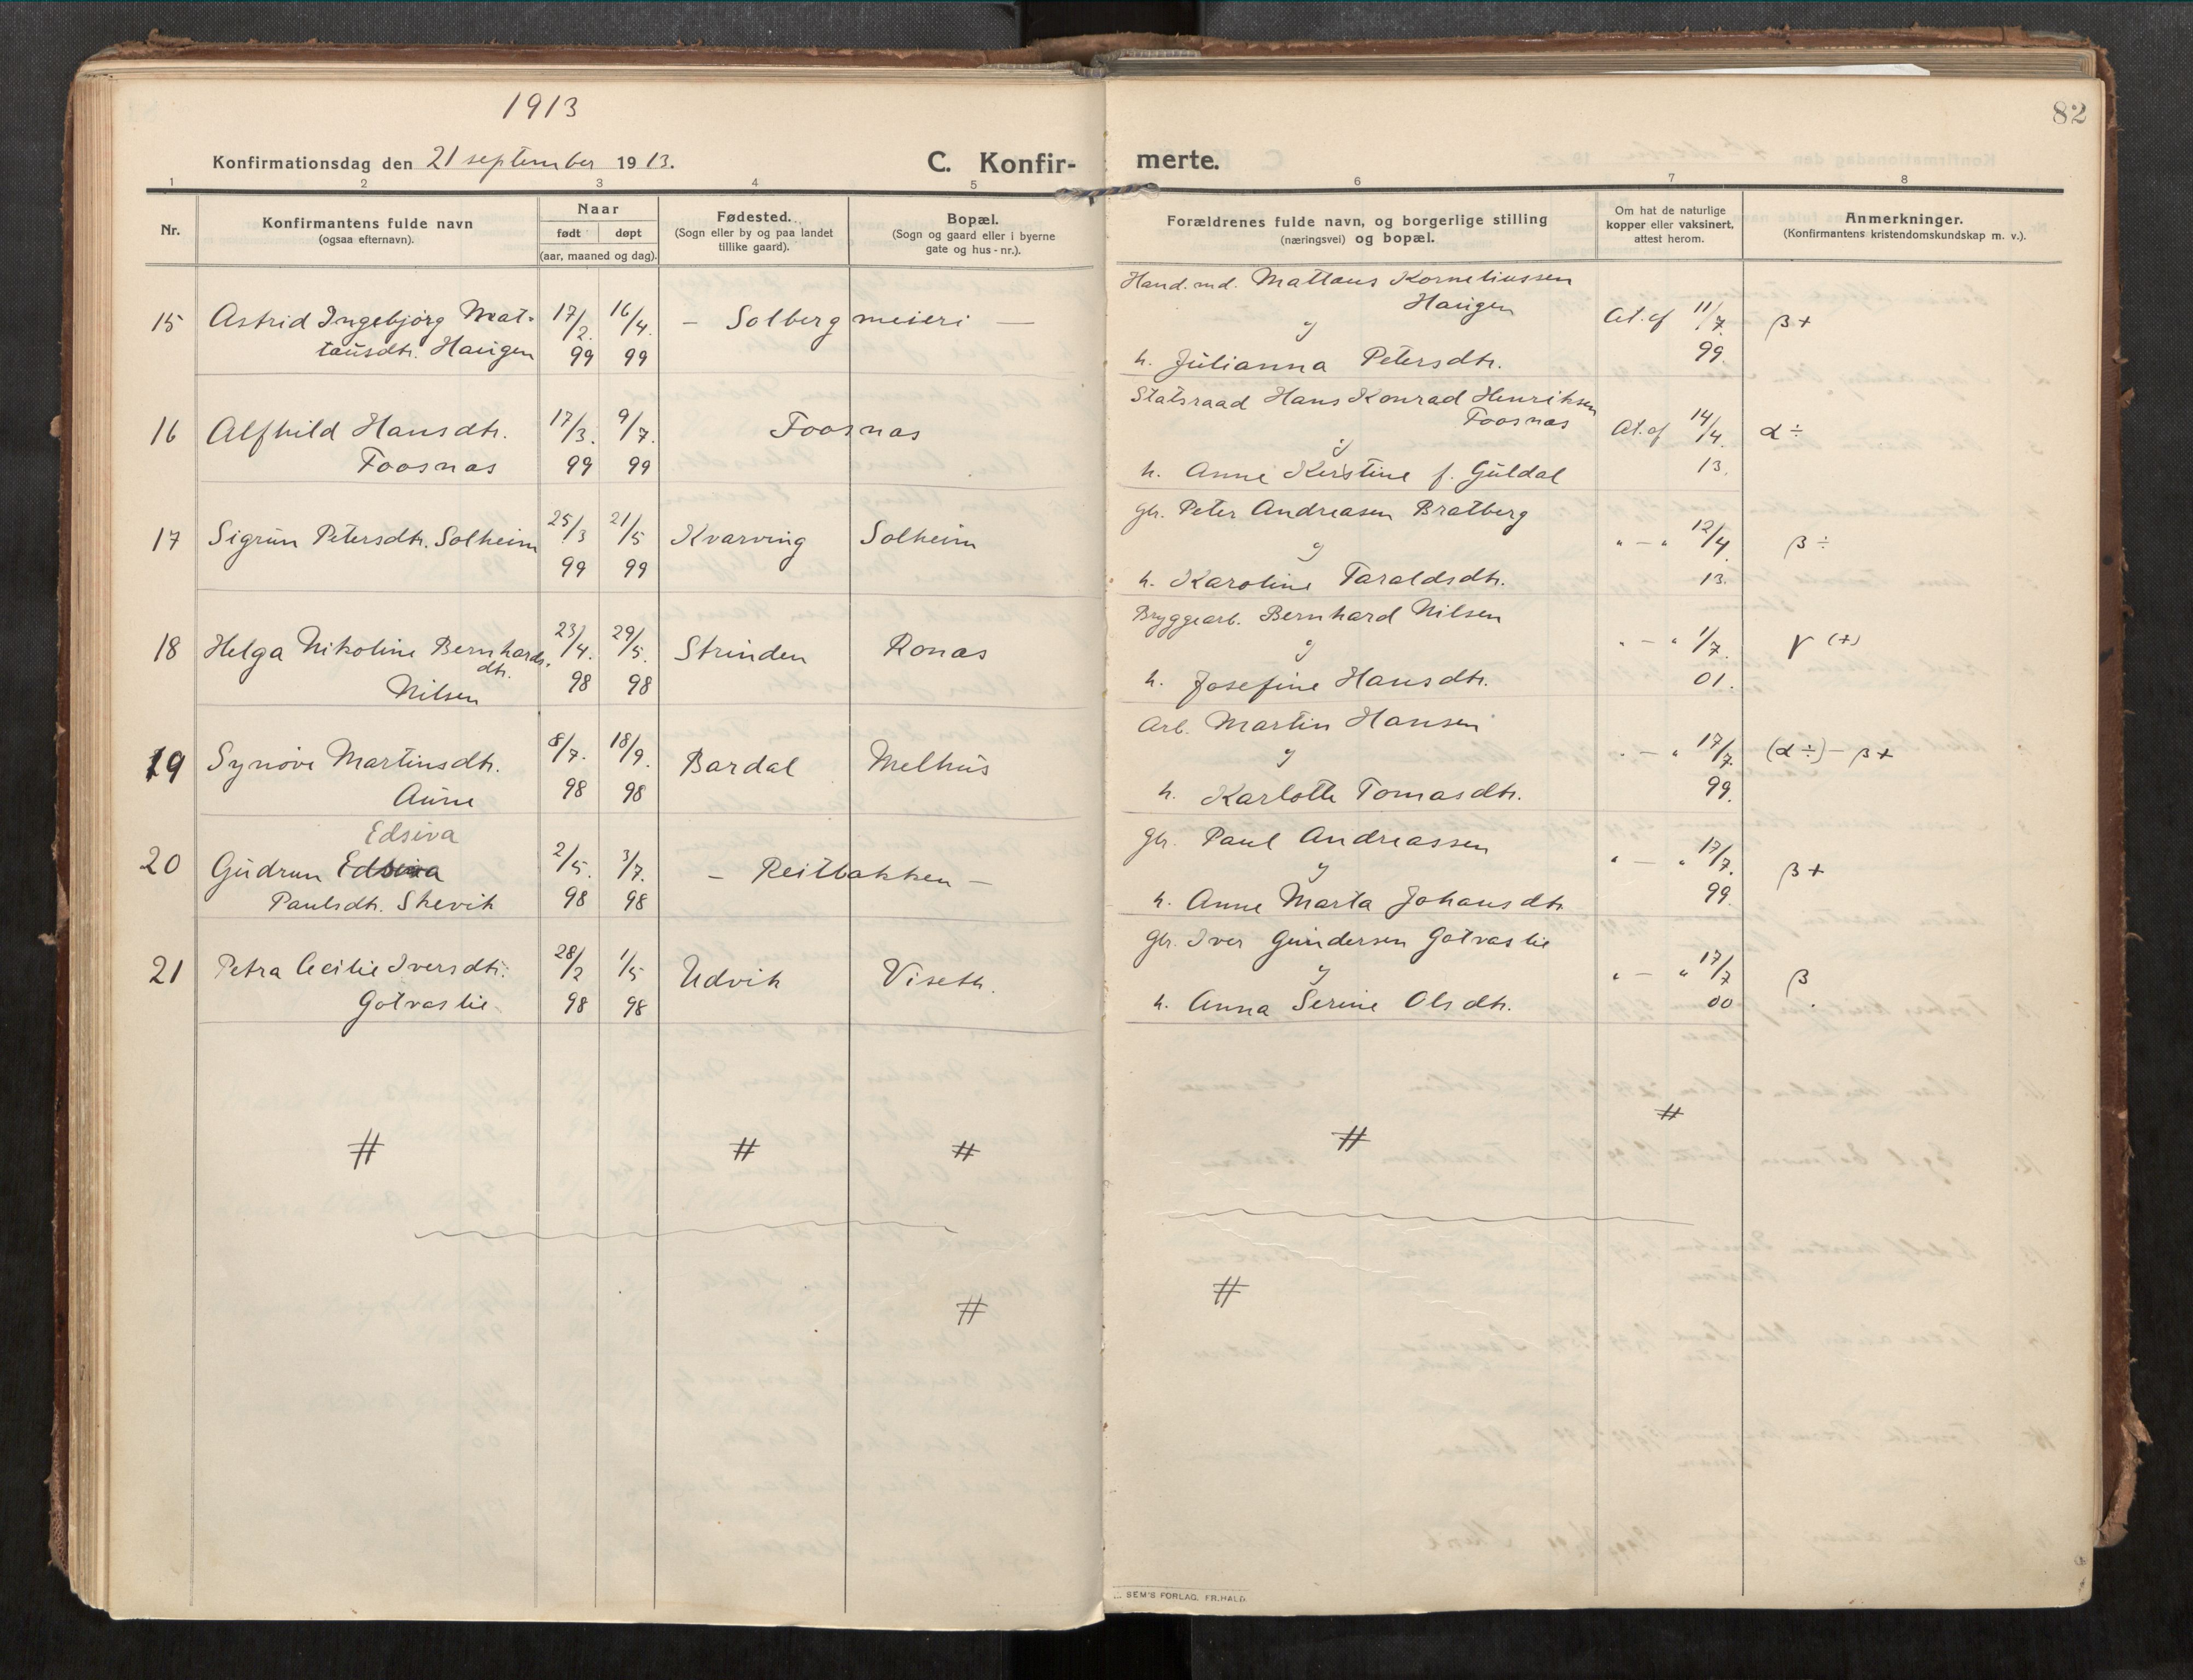 1913
82
Konfirmationsdag den 21 september 1913.
C. Konfir-
merte.
1 2 3 4 5 6 7 8
Nr.
Konfirmantens fulde navn
(ogsaa efternavn).
Naar
født
døpt
(aar, maaned og dag).
Fødested.
(Sogn eller by og paa landet
tillike gaard).
Bopæl.
(Sogn og gaard eller i byerne
gate og hus-nr.).
Forældrenes fulde navn, og borgerlige stilling
(næringsvei) og bopæl.
Om hat de naturlige
kopper eller vaksinert,
attest herom.
Anmerkninger.
(Konfirmantens kristendomskundskap m. v.).
Hand.md. Mattæus Korneliussen
Haugen
15 Astrid Ingebjørg Mat- 17/2. 16/4. – Solberg meieri – og At. af 11/7. β+
tæusdtr. Haugen 99 99 h. Julianna Petersdtr. 99.
Statsraad Hans Konrad Henriksen
Foosnæs
16 Alfhild Hansdtr. 17/3. 9/7. Foosnæs og At. af 14/4. α÷
Foosnæs 99 99 h. Anne Kirstine f. Guldal 13.
Gbr. Peter Andreasen Bratberg
17 Sigrun Petersdtr. Solheim 25/3 21/5 Kvarving Solheim og " — " 12/4. β÷
99 99 h. Karoline Taraldsdtr. 13.
Bryggearb. Bernhard Nilsen
18 Helga Nikoline Bernhards- 23/4. 29/5. Strinden Ronæs og " — " 1/7. γ (+)
dtr.
Nilsen 98 98 h. Josefine Hansdtr. 01.
Arb. Martin Hansen
19 Synøve Martinsdtr. 8/7. 18/9. Bardal Melhus og " — " 17/7. (α÷)–β+
Aune 98 98 h. Karlotte Tomasdtr. 99.
Edseva
Gbr. Paul Andreassen
20 Gudrun 2/5. 3/7. – Reitbakken – og " — " 17/7. β+
Paulsdtr. Skevik 98 98 h. Anne Marta Johansdtr. 99.
Gbr. Iver Gundersen Gotvaslie
21 Petra Cecilie Iversdtr. 28/2 1/5 Udvik Viseth. og " — " 17/7 β
Gotvaslie 98 98 h. Anna Serine Olsdtr. 00
# # # # #
# #
SEM'S FORLAG, FR.HALD